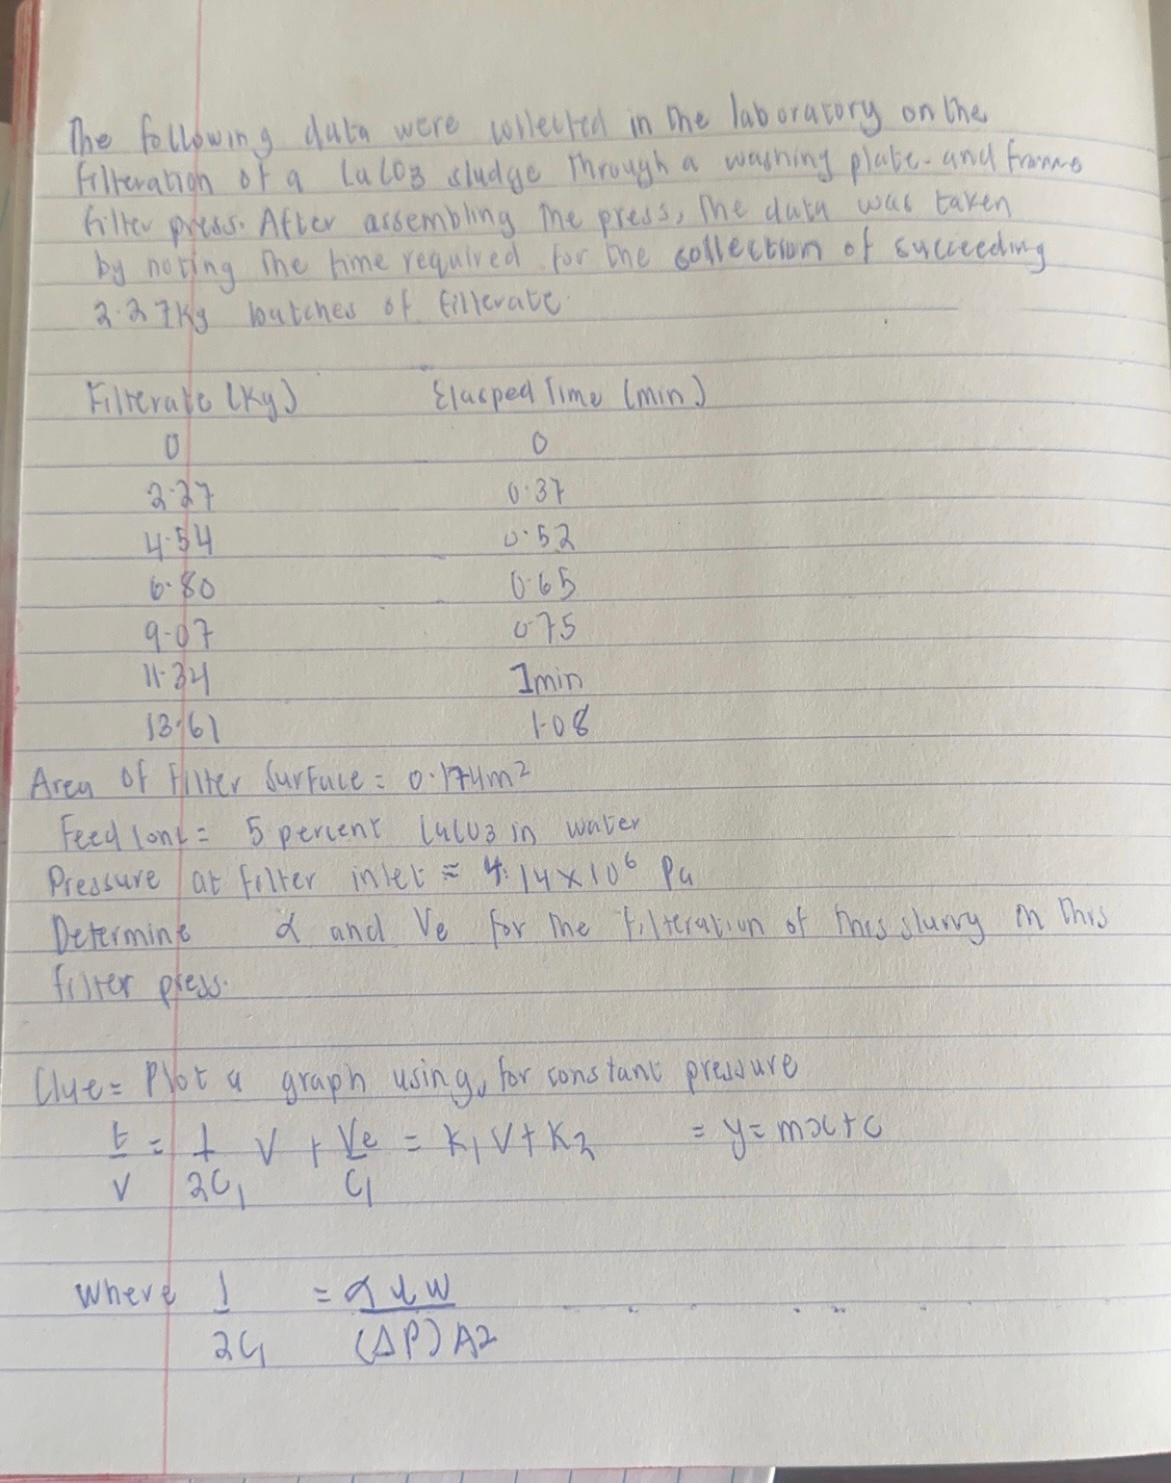 The following data were collected in the laboratory on the
filteration of a CaCO3 sludge through a washing plate-and frame
filter press. After assembling the press, the data was taken
by noting the time required for the collection of succeeding
2.27Kg batches of filterate.
Filterate (Kg) Elasped Time (min)
0 0
2.27 0.37
4.54 0.52
6.80 0.65
9.07 0.75
11.34 1min
13.61 1.08
Area of filter surface = 0.174m2
Feed conc = 5 percent CaCO3 in water
Pressure at filter inlet = 4.14x10^6 Pa
Determine α and Ve for the filteration of this slurry in this
filter press.
Clue = Plot a graph using, for constant pressure
t/V = 1/2C1 V + Ve/C1 = K1V + K2 = y = mx+c
Where 1/2C1 = αμw/(ΔP)A2